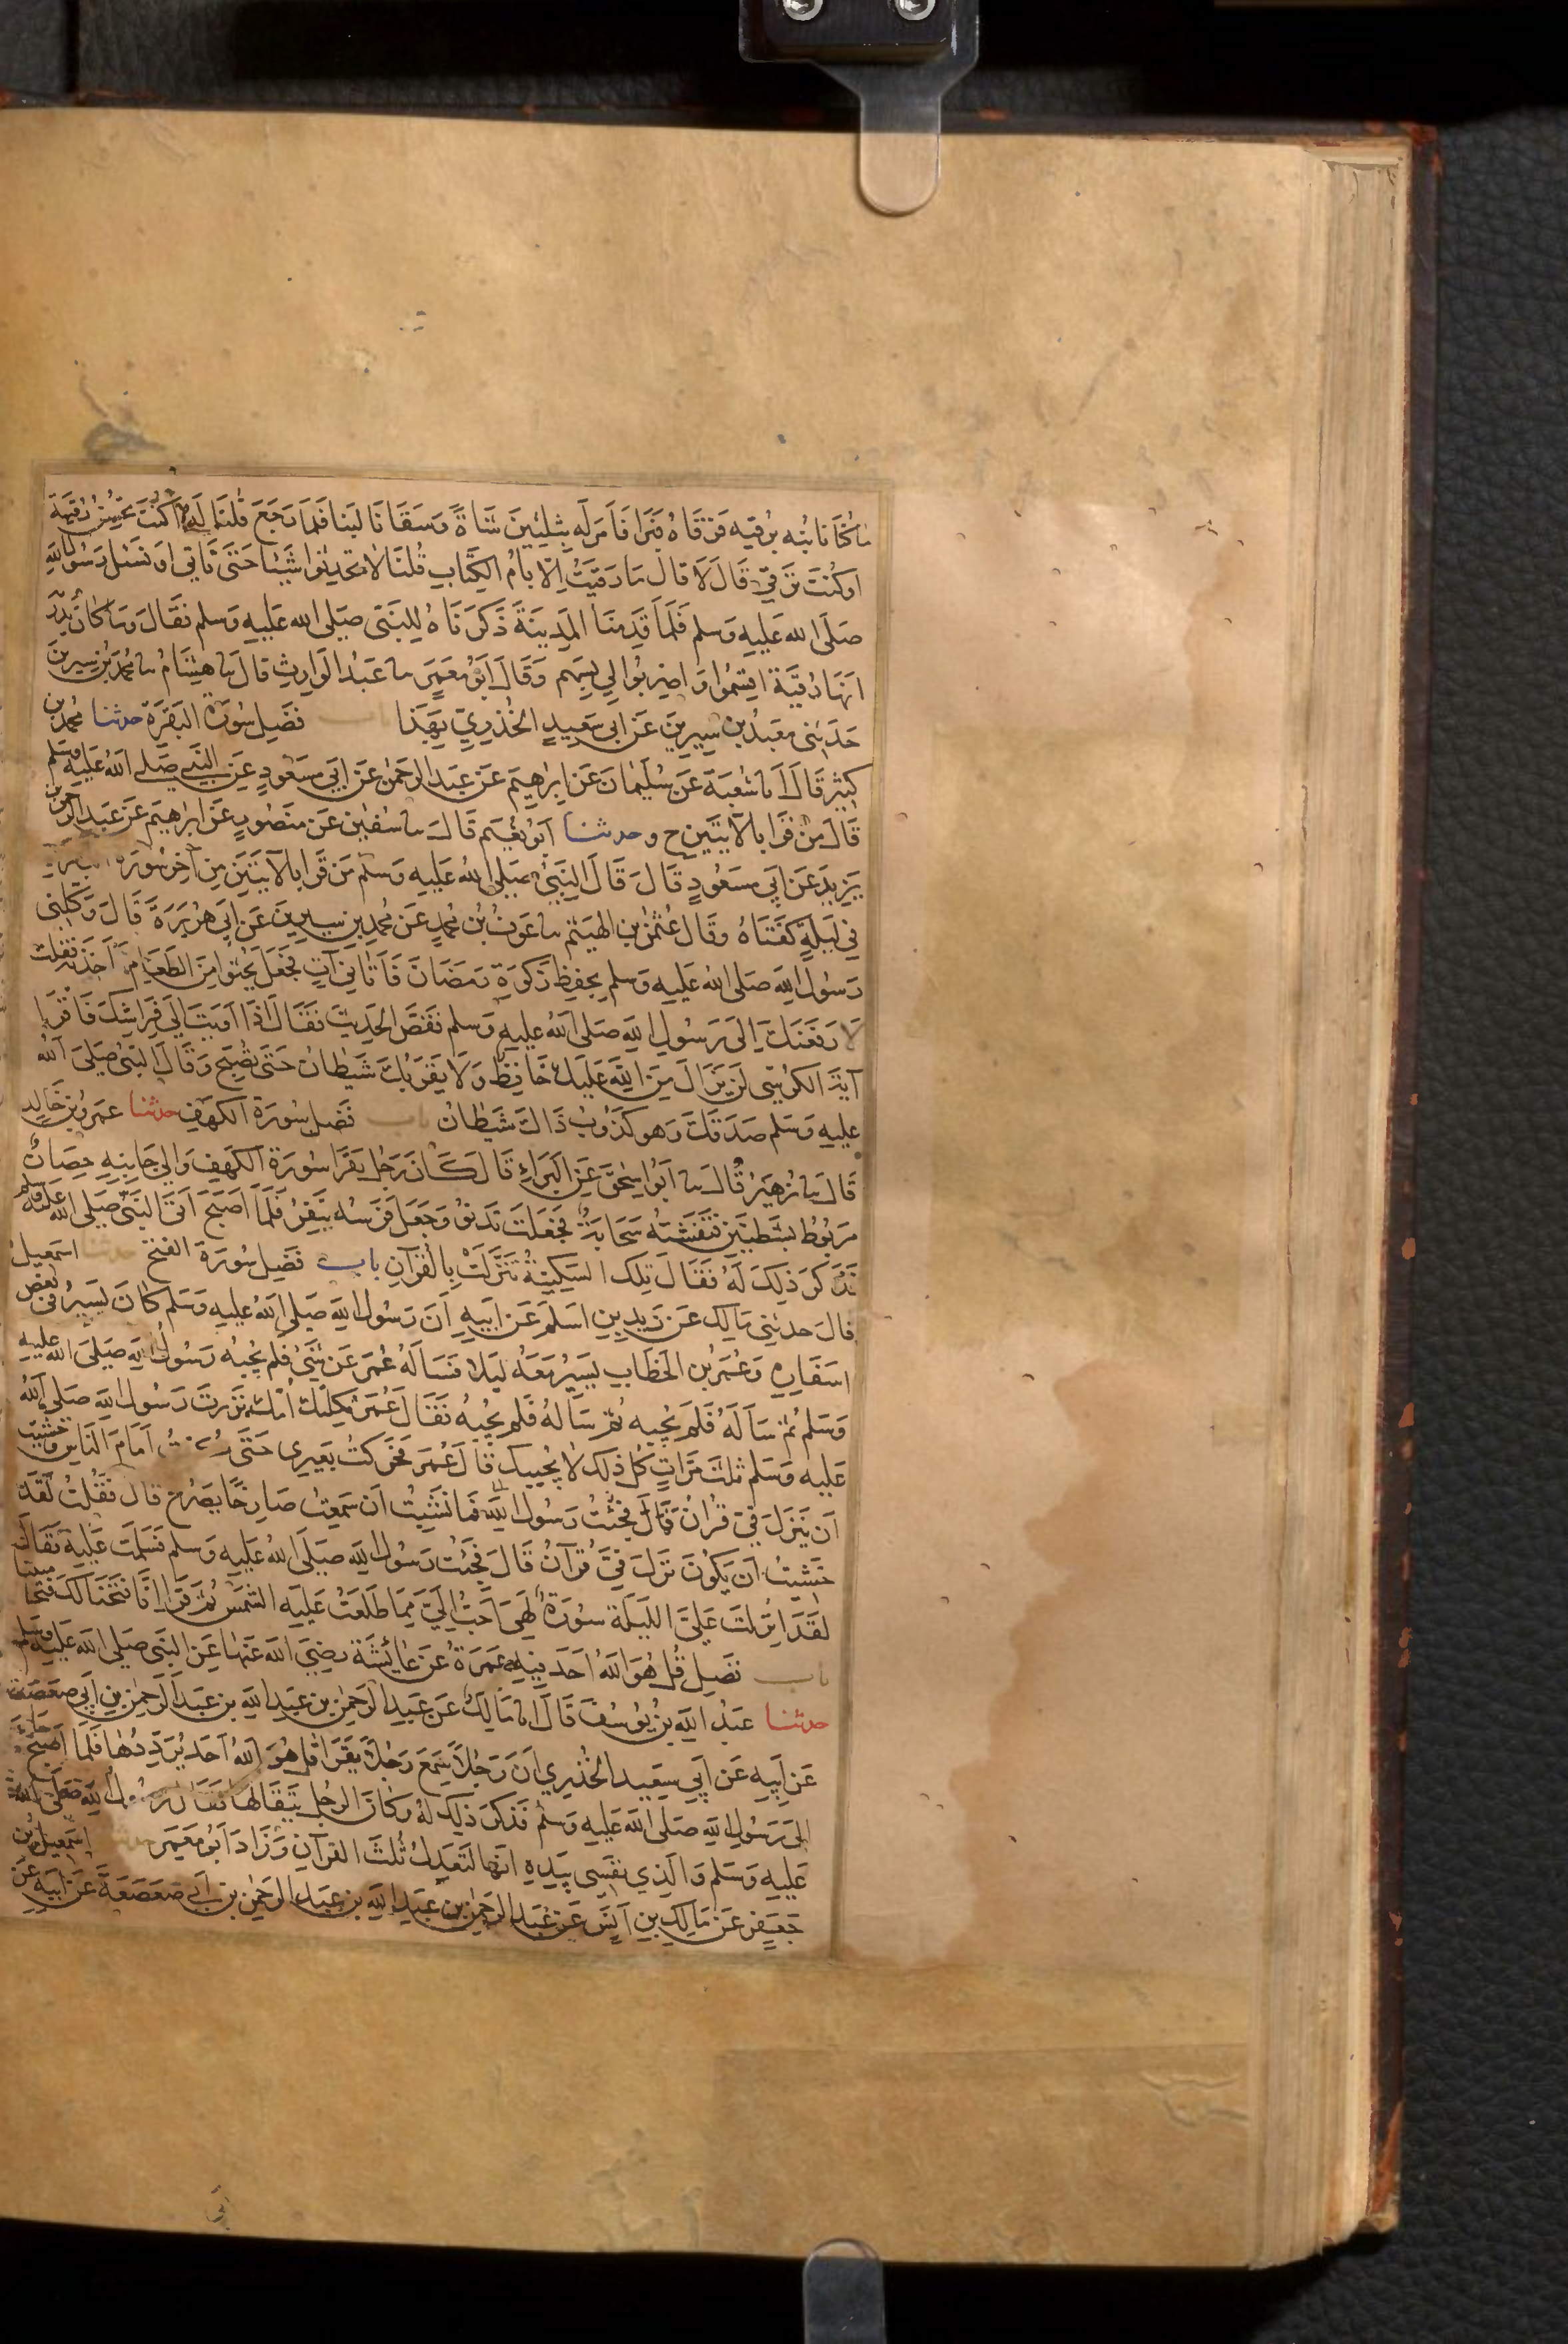 ما كنا نابنه برقيه فرقاه فبرا فامر له بثلثين شاة وسقانا لبنا فلما رجع قلنا له اكنت تحسن رقية
او كنت ترقي قال لا قال ما رقيت الا بام الكتاب قلنا لا تحدثوا شيئا حتى ناتي او نسل رسول الله
صلى الله عليه وسلم فلما قدمنا المدينة ذكرناه للنبي صلى الله عليه وسلم فقال وما كان يدريه
انها رقية اقسموا واضربوا لي بسهم وقال ابو معمر سا عبد الوارث قال سا هشام سا محمد بن سيرين
حدثني معبد بن سيرين عن ابي سعيد الخذري بهذا باب فضل سورة البقرة حدثنا محمد بن
كثير قال انا شعبة عن سليمان عن ابرهيم عن عبد الرحمن عن ابي مسعود عن النبي صلى الله عليه وسلم
قال من قرا بالآيتين ح وحدثنا ابو نعيم قال سا سفين عن منصور عن ابرهيم عن عبد الرحمن بن
يزيد عن ابي مسعود قال قال النبي صلى الله عليه وسلم من قرا بالآيتين من آخر سورة البقرة
في ليلة كفتاه وقال عثمن بن الهيثم سا عوف بن محمد عن محمد بن سيرين عن ابي هريرة قال وكلني
رسول الله صلى الله عليه وسلم بحفظ زكوة رمضان فاتاني آت فجعل يحثوا من الطعام فاخذته فقلت
لارفعنك الى رسول الله صلى الله عليه وسلم فقص الحديث فقال اذا اويت الى فراشك فاقرا
آية الكرسي لن يزال من الله عليك حافظ ولا يقربك شيطان حتى تصبح وقال النبي صلى الله
عليه وسلم صدقك وهو كذوب ذاك شيطان باب فضل سورة الكهف حدثنا عمرو بن خالد
قال سا زهير قال سا ابو اسحق عن البراء قال كان رجل يقرا سورة الكهف والى جانبه حصان
مربوط بشطنين فتغشته سحابة فجعلت تدنو وجعل فرسه ينفر فلما اصبح اتى النبي صلى الله عليه وسلم
فذكر ذلك له فقال تلك السكينة تنزلت بالقرآن باب فضل سورة الفتح حدثنا اسمعيل
قال حدثني مالك عن زيد بن اسلم عن ابيه ان رسول الله صلى الله عليه وسلم كان يسير في بعض
اسفاره وعمر بن الخطاب يسير معه ليلا فسأله عمر عن شئ فلم يجبه رسول الله صلى الله عليه
وسلم ثم سأله فلم يجبه ثم سأله فلم يجبه فقال عمر ثكلتك امك نزرت رسول الله صلى الله
عليه وسلم ثلث مرات كل ذلك لا يجيبك قال عمر فحركت بعيري حتى كنت امام الناس وخشيت
ان ينزل في قرآن فما نشبت ان سمعت صارخا يصرخ قال فقلت لقد
خشيت ان يكون نزل في قرآن قال فجئت رسول الله صلى الله عليه وسلم فسلمت عليه فقال
لقد انزلت علي الليلة سورة لهي احب الي مما طلعت عليه الشمس ثم قرا انا فتحنا لك فتحا مبينا
باب فضل قل هو الله احد فيه عمرة عن عائشة رضي الله عنها عن النبي صلى الله عليه وسلم
حدثنا عبد الله بن يوسف قال انا مالك عن عبد الرحمن بن عبد الله بن عبد الرحمن بن ابي صعصعة
عن ابيه عن ابي سعيد الخذري ان رجلا سمع رجلا يقرا قل هو الله احد يرددها فلما اصبح جاء
الى رسول الله صلى الله عليه وسلم فذكر ذلك له وكان الرجل يتقالها فقال رسول الله صلى الله
عليه وسلم والذي نفسي بيده انها لتعدل ثلث القرآن وزاد ابو معمر حدثنا اسمعيل بن
جعفر عن مالك بن انس عن عبد الرحمن بن عبد الله بن عبد الرحمن بن ابي صعصعة عن ابيه عن